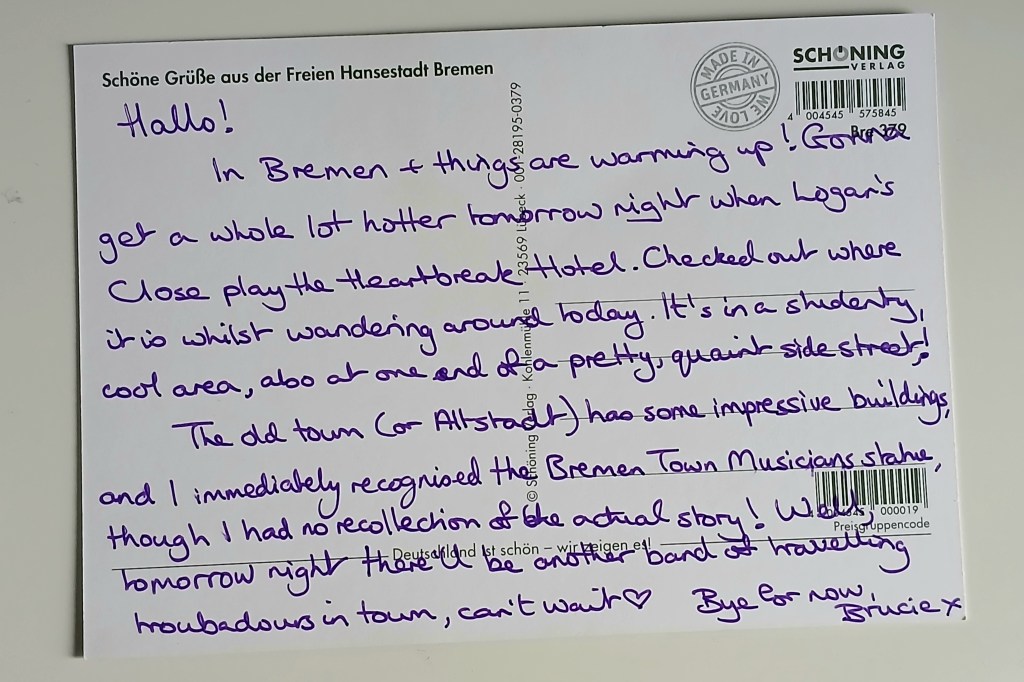 Schöne Grüße aus der Freien Hansestadt Bremen
MADE IN
GERMANY
WE LOVE
SCHÖNING
VERLAG
4 004545 575845
Bre 379
Hallo!
In Bremen + things are warming up! Gonna
get a whole lot hotter tomorrow night when Logan's
Close play the Heartbreak Hotel. Checked out where
it is whilst wandering around today. It's in a studenty,
cool area, also at one end of a pretty, quaint side street!
The old town (or Altstadt) has some impressive buildings,
and I immediately recognised the Bremen Town Musicians statue,
though I had no recollection of the actual story! Well,
tomorrow night there'll be another band of travelling
troubadours in town, can't wait ♡ Bye for now,
Brucie x
© Schöning Verlag · Kohlenmühle 11 · 23569 Lübeck · 001-28195-0379
000019
Preisgruppencode
Deutschland ist schön – wir zeigen es!